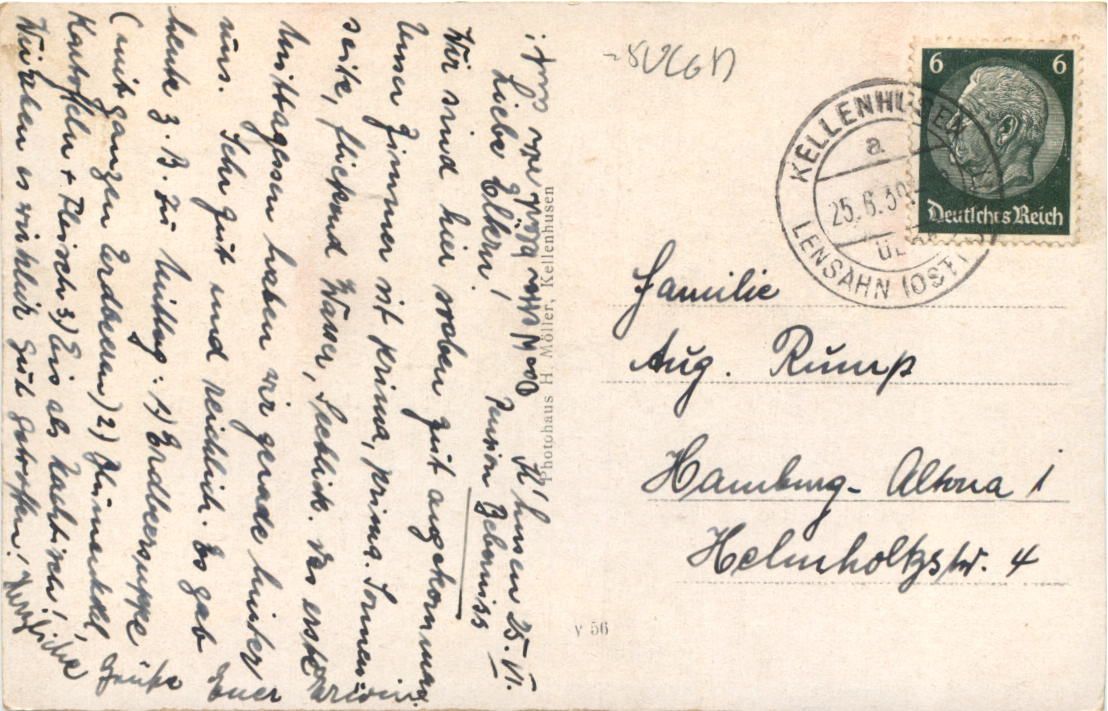 K'husen 25. VI.
Pension Behnniss
Liebe Eltern!
Wir sind hier oben gut angekommen.
Unser Zimmer ist prima, prima. Sonnen-
seite, fließend Wasser, Seeblick. Das erste
Mittagessen haben wir gerade hinter
uns. Sehr gut und reichlich. Es gab
heute z. B. zu Mittag: 1) Erdbeersuppe
(mit ganzen Erdbeeren) 2)
Kartoffeln + Fleisch 3) Eis als Nachtisch!
Wir haben es wirklich gut getroffen! Herzliche
Grüße Euer Erwin
Photohaus H. Möller, Kellenhusen
V 56
6 6
Deutsches Reich
KELLENHUSEN
a
25.6.39
ÜB
LENSAHN (OST
Familie
Aug. Rump
Hamburg-Altona 1
Helmholtzstr. 4